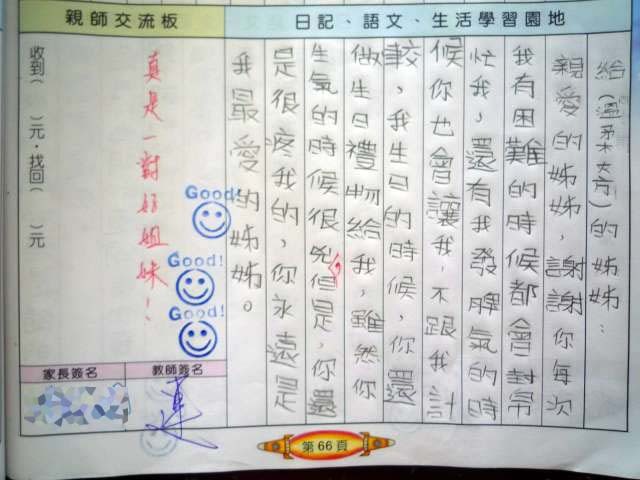 日記、語文、生活學習園地
給（溫柔大方）的姊姊：
親愛的姊姊，謝謝你每次
我有困難的時候都會幫
忙我，還有我發脾氣的時
候你也會讓我，不跟我計
較，我生日的時候，你還
做生日禮物給我，雖然你
生氣的時候很兇，但是，你還
是很疼我的，你永遠是
我最愛的姊姊。
親師交流板
Good!
Good!
Good!
真是一對好姐妹！
收到（ ）元，找回（ ）元
教師簽名
家長簽名
第66頁